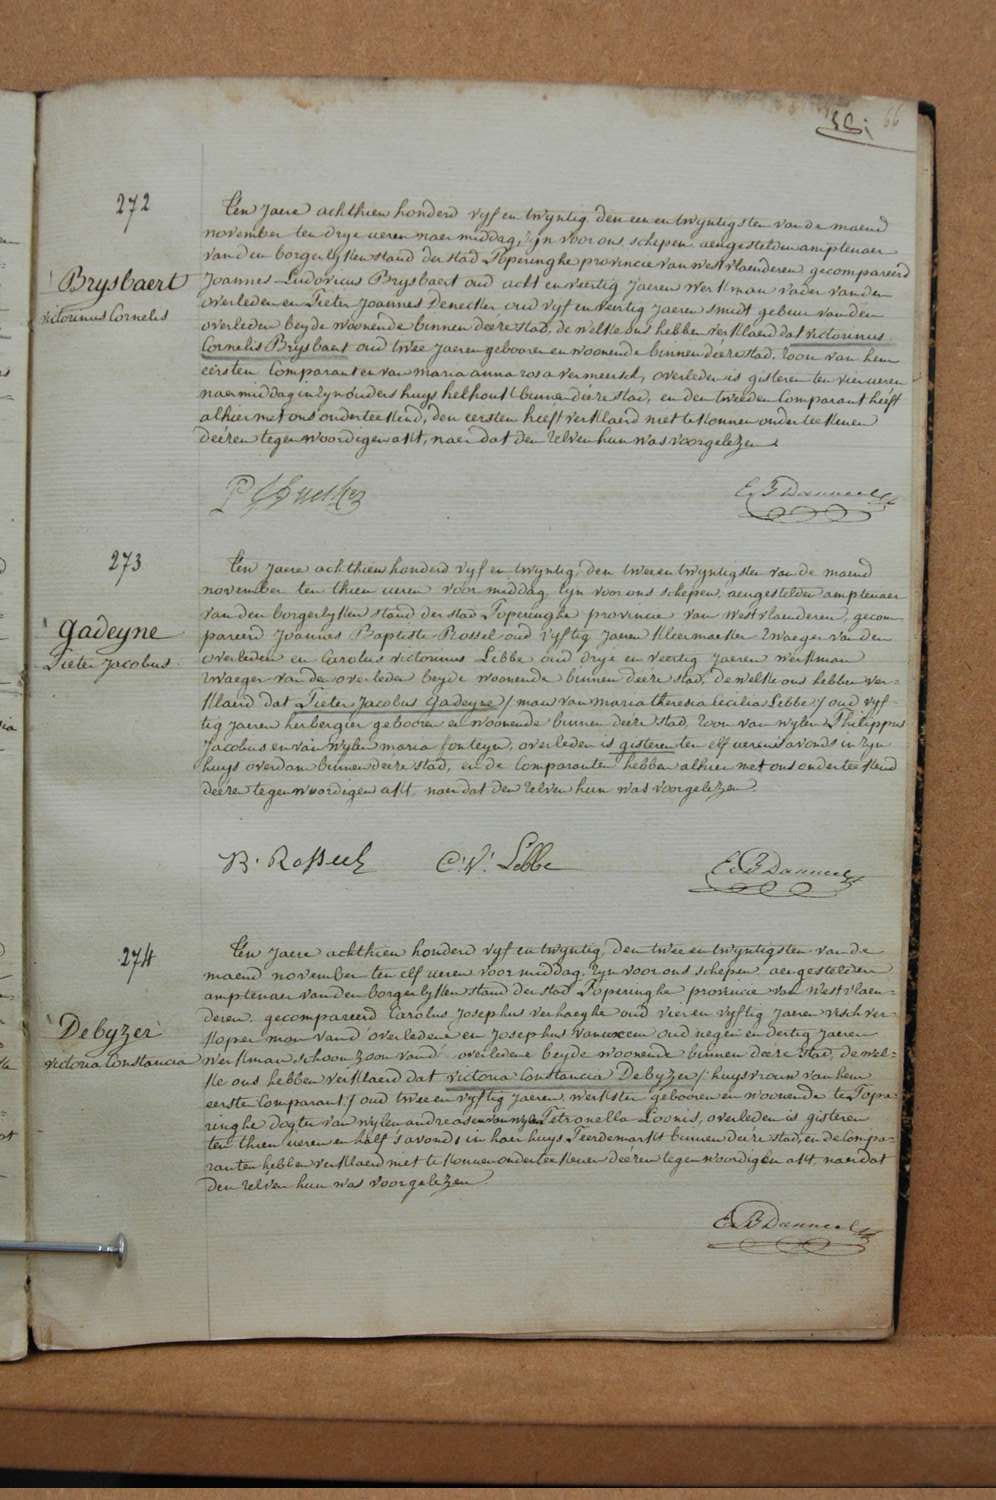 66
272
Ten Jaere achthien honderd vyf en twyntig den een en twyntigsten van de maend
november ten drye ueren naer middag, zyn voor ons schepen aengestelden amptenaer
van den borgerlyken stand der stad Poperinghe provincie van westvlaenderen gecompareerd
Brysbaert
Joannes Ludovicus Brysbaert oud acht en veertig Jaeren werkman vader van den
victorinus Cornelis
overleden en Pieter Joannes Denecker oud vyf en veertig Jaeren smidt gebeur van den
overleden beyde woonende binnen deeze stad, de welke ons hebben verklaerd dat victorinus
Cornelis Brysbaert oud twee Jaeren gebooren en woonende binnen deeze stad, zoon van hem
eersten Comparant en van maria anna rosa vermeersch, overleden is gisteren ten vier ueren
naermiddag in zyn ouders huys helhoust binnen deeze stad, en den tweeden Comparant heeft
alhier met ons onderteekend, den eersten heeft verklaerd niet te konnen onderteekenen
deezen tegenwoordigen akt, naer dat den zelven hun was voorgelezen.
E. B Danneel
273
Ten Jaere achthien honderd vyf en twyntig, den twee en twyntigsten van de maend
november ten thien ueren voor middag zyn voor ons schepen, aengestelden amptenaer
van den borgerlyken stand der stad Poperinghe provincie van westvlaenderen, gecom-
Gadeyne
pareerd Joannes Baptiste Rossel oud vyftig Jaeren kleermaeker zwaeger van den
Pieter Jacobus
overleden en Carolus victorinus Lebbe oud drye en veertig Jaeren werkman
zwaeger van den overleden beyde woonende binnen deeze stad, de welke ons hebben ver-
klaerd dat Pieter Jacobus Gadeyne / man van maria theresia Cecilia Lebbe / oud vyf-
tig Jaeren herbergier gebooren en woonende binnen deeze stad, zoon van wylen Philippus
Jacobus en van wylen maria fonteyn, overleden is gisteren ten elf ueren s'avonds in zyn
huys overdam binnen deeze stad, en de Comparanten hebben alhier met ons onderteekend
deezen tegenwoordigen akt, naer dat den zelven hun was voorgelezen.
B. Rosseel C. V. Lebbe E. B Danneel
274
Ten Jaere achthien honderd vyf en twyntig, den twee en twyntigsten van de
maend november ten elf ueren voor middag, zyn voor ons schepen, aengestelden
amptenaer van den borgerlyken stand der stad Poperinghe provincie van westvlaen-
deren, gecompareerd Carolus Josephus verhaeghe oud vier en vyftig Jaeren visch ver-
Debyzer
kooper man vand' overledene en Josephus vanuxem oud negen en dertig Jaeren
victoria Constancia
werkman schoonzoon vand' overledene beyde woonende binnen deeze stad, de wel-
ke ons hebben verklaerd dat victoria Constancia Debyzer / huysvrouw van hem
eerste Comparant / oud twee en vyftig Jaeren, werkster, gebooren en woonende te Pope-
ringhe dogter van wylen andreas en van wylen Petronella Loonis, overleden is gisteren
ten thien ueren en half s'avonds in haer huys Peerdemarkt binnen deeze stad, en de Compa-
ranten hebben verklaerd niet te konnen onderteekenen deezen tegenwoordigen akt, naer dat
den zelven hun was voorgelezen
E. B Danneel